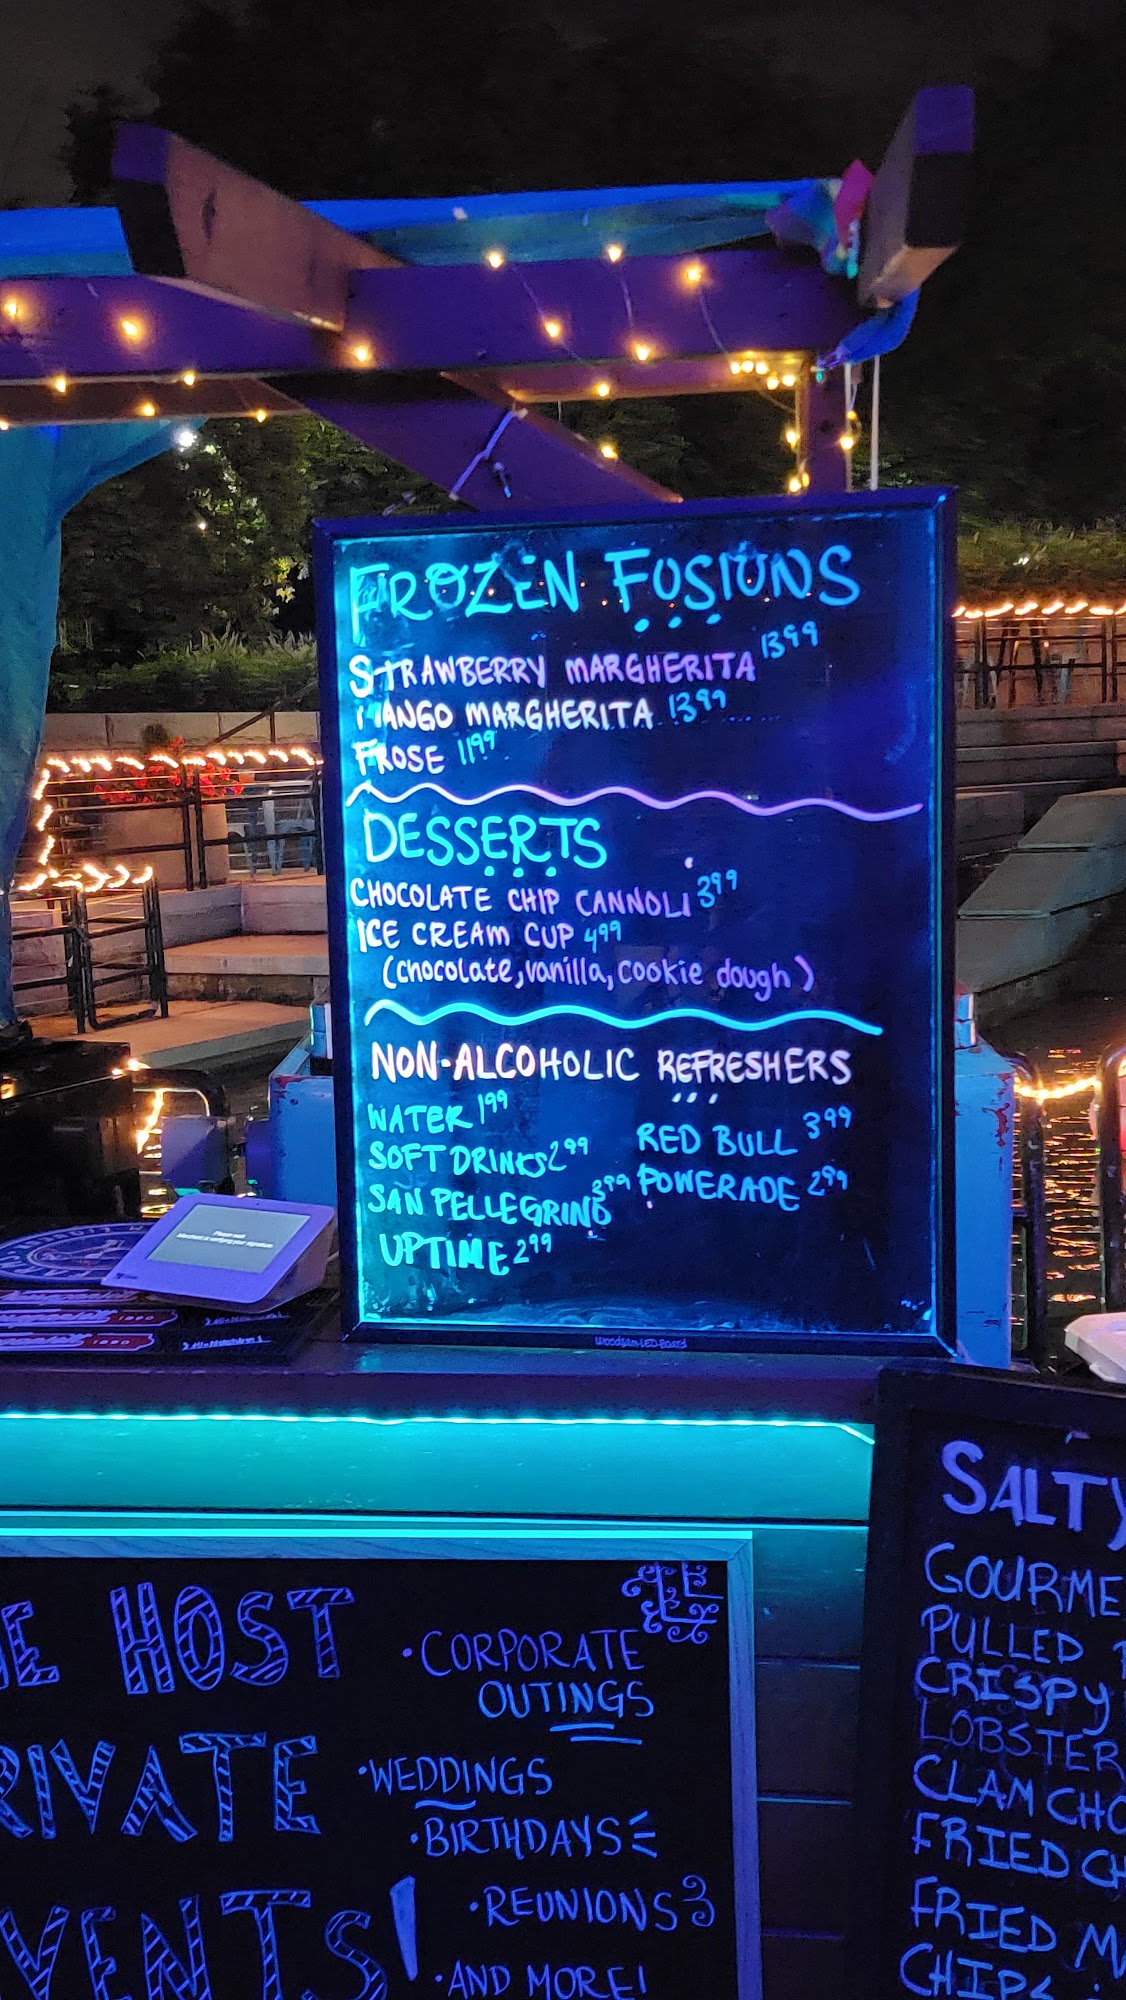 FROZEN FUSIONS
STRAWBERRY MARGHERITA 13.99
MANGO MARGHERITA 13.99
FROSE 11.99
DESSERTS
CHOCOLATE CHIP CANNOLI 3.99
ICE CREAM CUP 4.99
(chocolate, vanilla, cookie dough)
NON-ALCOHOLIC REFRESHERS
WATER 1.99
SOFT DRINKS 2.99
SAN PELLEGRINO 3.99
UPTIME 2.99
RED BULL 3.99
POWERADE 2.99
WoodsamLEDBoard
HOST
PRIVATE
EVENTS!
• CORPORATE
OUTINGS
• WEDDINGS
• BIRTHDAYS
• REUNIONS
• AND MORE!
SALTY
GOURME
PULLED
CRISPY
LOBSTER
CLAM CHO
FRIED CH
FRIED M
CHIPS